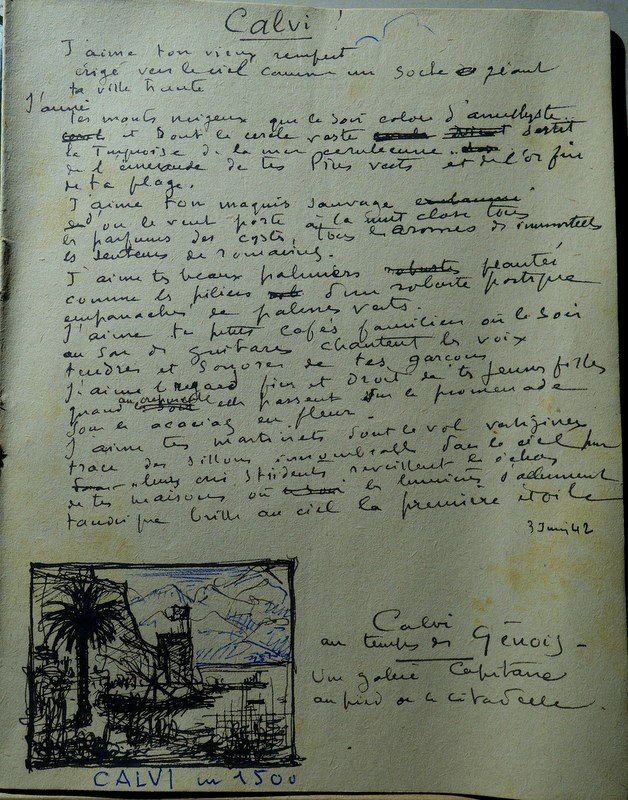 Calvi !
J'aime ton vieux rempart
érigé vers le ciel comme un socle géant
ta ville haute
J'aime
tes monts neigeux que le soir colore d'améthyste
et dont le cercle vaste sertit
la turquoise de la mer céruléenne
de l'émeraude de tes Pins verts et de l'or fin
de ta plage.
J'aime ton maquis sauvage
d'où le vent porte à la nuit close tous
les parfums des cystes, tous les arômes des immortelles
les senteurs de romarins.
J'aime tes beaux palmiers robustes plantés
comme les piliers d'un robuste portique
empanachés de palmes verts.
J'aime tes petits cafés familiers où le soir
au son des guitares chantent les voix
tendres et sonores de tes garçons
J'aime le regard fier et droit de tes jeunes filles
quand au crépuscule elles passent sur la promenade
sous les acacias en fleur.
J'aime tes martinets dont le vol vertigineux
trace des sillons innombrables dans le ciel pur
leurs cris stridents réveillent les échos
de tes maisons où les lumières s'allument
tandis que brille au ciel la première étoile
3 Juin 42
Calvi
au temps des Génois -
Une galère Capitane
au pied de la citadelle.
CALVI en 1500